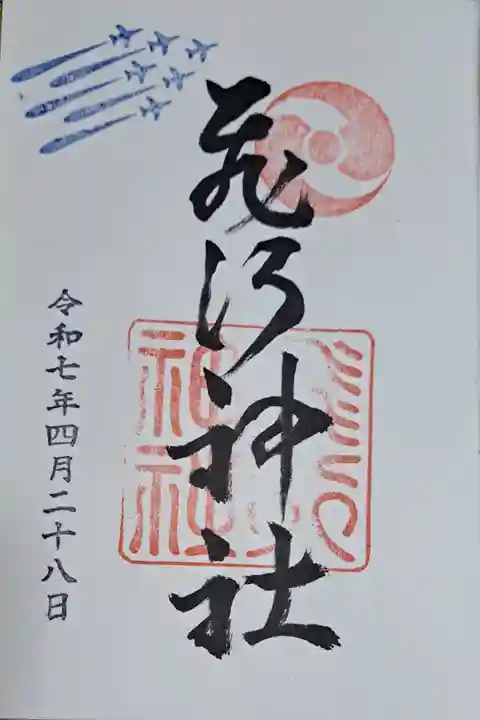 飛行神社
令和七年四月二十八日